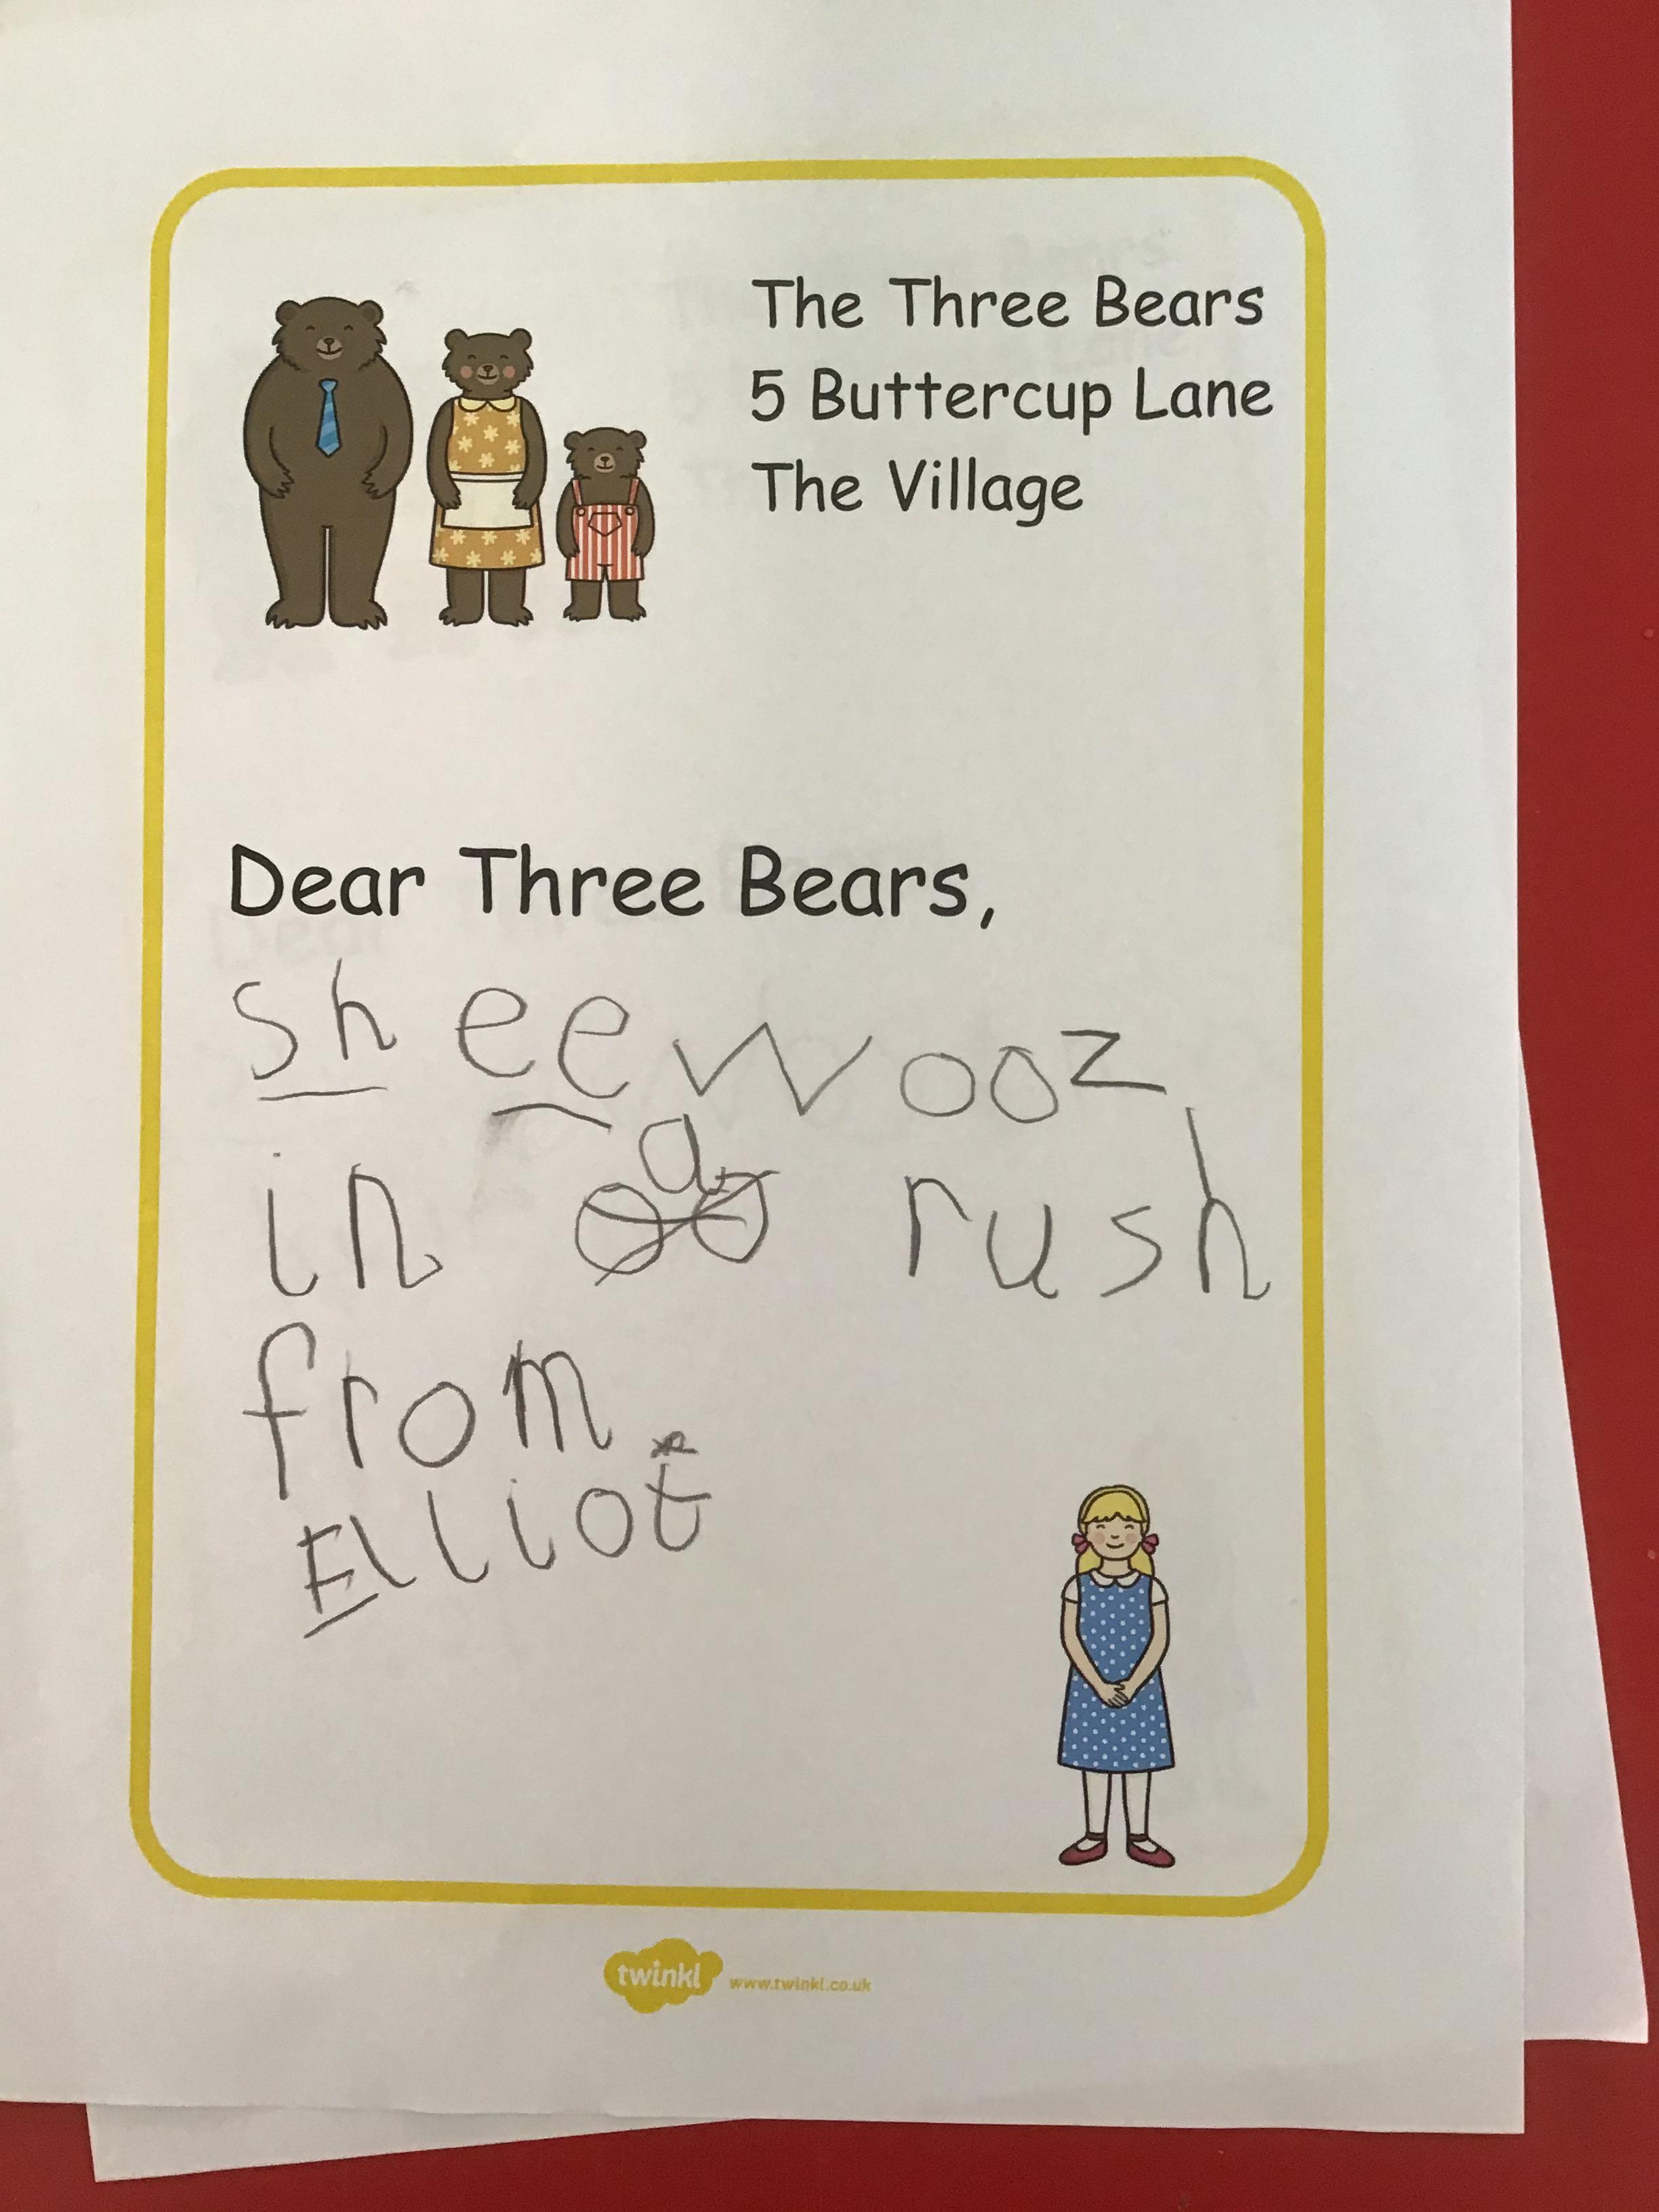 The Three Bears
5 Buttercup Lane
The Village
Dear Three Bears,
shee wooz
in a rush
from
Elliot
twinkl www.twinkl.co.uk